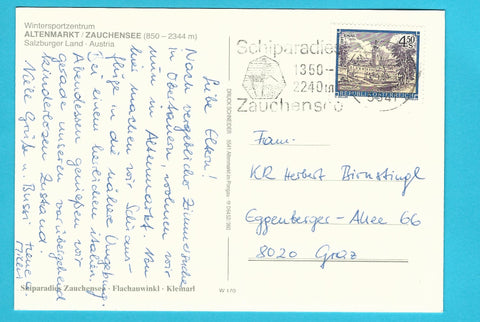 Wintersportzentrum
ALTENMARKT / ZAUCHENSEE (850 – 2344 m)
Salzburger Land · Austria
Liebe Eltern!
Nach vergeblicher Zimmersuche
in Obertauern, wohnen wir
nun in Altenmarkt. Von
hier machen wir Schiaus-
flüge in die nähere Umgebung.
Bei einem herrlichen italien.
Abendessen genießen wir
gerade unseren vorübergehend
kinderlosen Zustand.
Viele Grüße u. Bussi
Schiparadies Zauchensee · Flachauwinkl · Kleinarl
DRUCK SCHNEIDER
5541 Altenmarkt im Pongau
W 170
Schiparadies
1350-
2240m
Zauchensee
5541
4.50
REPUBLIK ÖSTERREICH
Fam.
KR Herbert Birnstingl
Eggenberger-Allee 66
8020 Graz